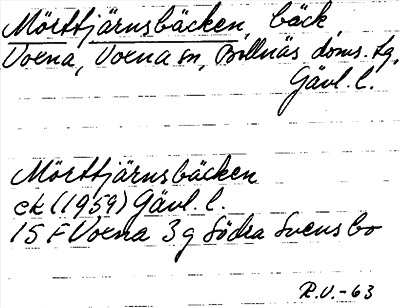 Mörttjärnsbäcken, bäck,
Voxna, Voxna sn, Bollnäs doms.tg,
Gävl. l.
Mörttjärnsbäcken
ek (1959) Gävl. l.
15 F Voxna 3 g Södra Svensbo
R.V.-63